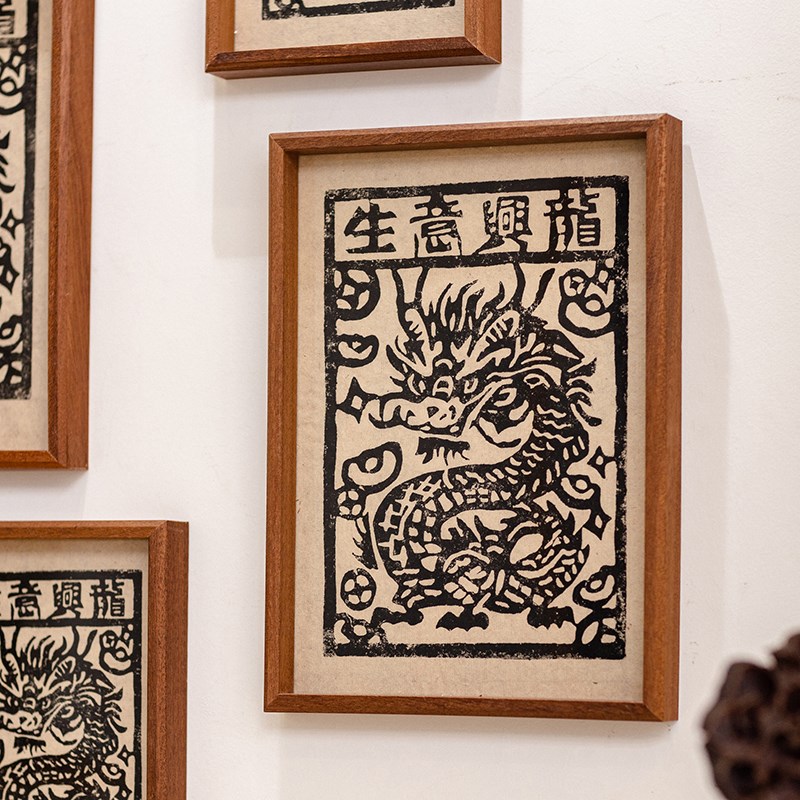 生意興龍
意興龍